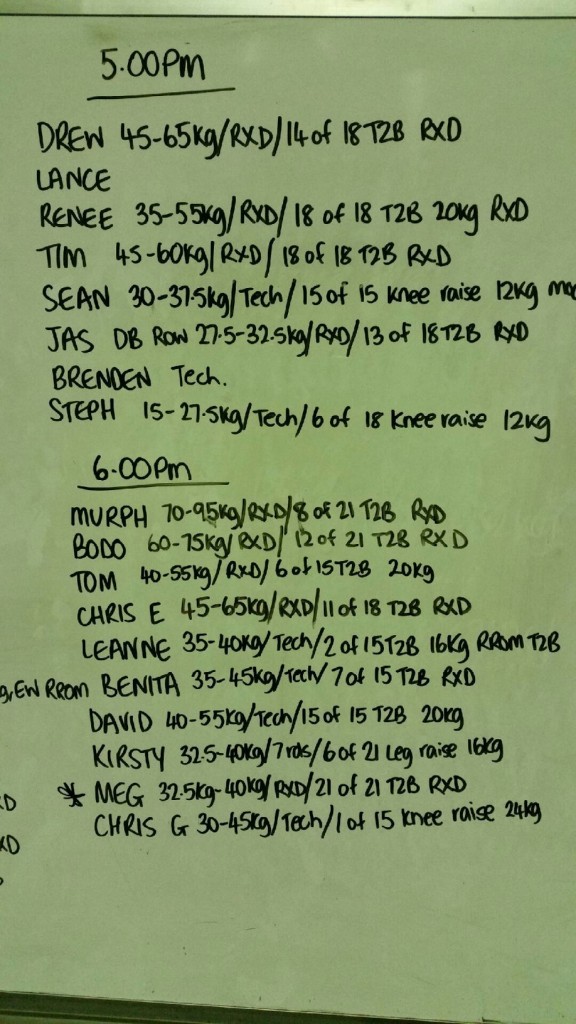 5.00pm
DREW 45-65kg/RXD/14 of 18 T2B RXD
LANCE
RENEE 35-55kg/RXD/18 of 18 T2B 20kg RXD
TIM 45-60kg/RXD/18 of 18 T2B RXD
SEAN 30-37.5kg/Tech/15 of 15 Knee raise 12kg
JAS DB ROW 27.5-32.5kg/RXD/13 of 18 T2B RXD
BRENDEN Tech.
STEPH 15-27.5kg/Tech/6 of 18 Knee raise 12kg
6.00pm
MURPH 70-95kg/RXD/8 of 21 T2B RXD
BODO 60-75kg/RXD/12 of 21 T2B RXD
TOM 40-55kg/RXD/6 of 15 T2B 20kg
CHRIS E 45-65kg/RXD/11 of 18 T2B RXD
LEANNE 35-40kg/Tech/2 of 15 T2B 16kg RROM T2B
EW RROM BENITA 35-45kg/Tech/7 of 15 T2B RXD
DAVID 40-55kg/Tech/15 of 15 T2B 20kg
KIRSTY 32.5-40kg/7rds/6 of 21 Leg raise 16kg
* MEG 32.5kg-40kg/RXD/21 of 21 T2B RXD
CHRIS G 30-45kg/Tech/1 of 15 Knee raise 24kg